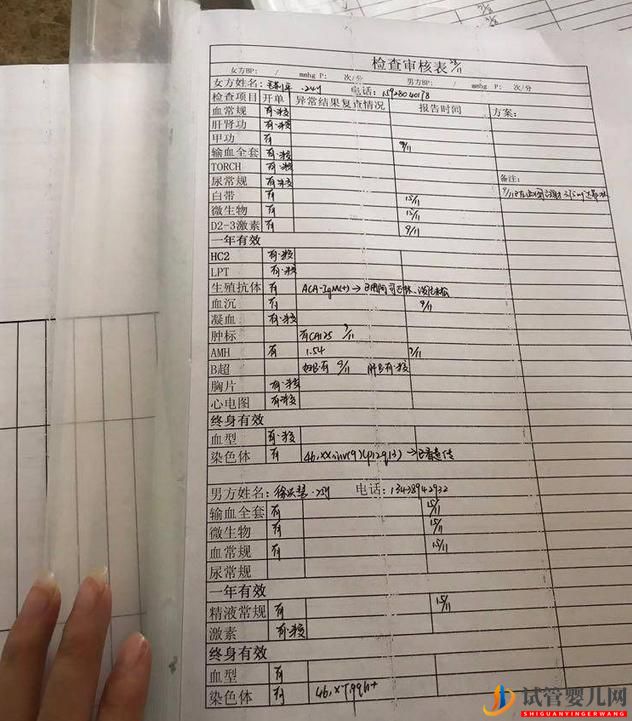 检查审核表
女方BP: / mmhg P: 次/分 男方BP: / mmhg P: 次/分
女方姓名: 电话:
检查项目 开单 异常结果复查情况 报告时间 方案:
血常规 有·核
肝肾功 有·核
甲功 有
输血全套 有·核 9/11
TORCH 有·核
尿常规 有·核 备注:
白带 有 15/11
微生物 有 15/11
D2-3激素 有 9/11
一年有效
HC2 有·核
LPT 有·核
生殖抗体 有 ACA-IgM(+)→
血沉 有 9/11
凝血 有·核
肿标 有CA125 9/11
AMH 有 1.54 9/11
B超 妇B有 9/11 有·核
胸片 有·核
心电图 有·核
终身有效
血型 有·核
染色体 有 46,XX,inv(9)(p12q13)→已看遗传
男方姓名: 电话: 13438942932
输血全套 有 15/11
微生物 有 15/11
血常规 有 15/11
尿常规
一年有效
精液常规 有 15/11
激素 有·核
终身有效
血型 有
染色体 有 46,XYqh+
试管婴儿网
SHIGUANYINGERWANG